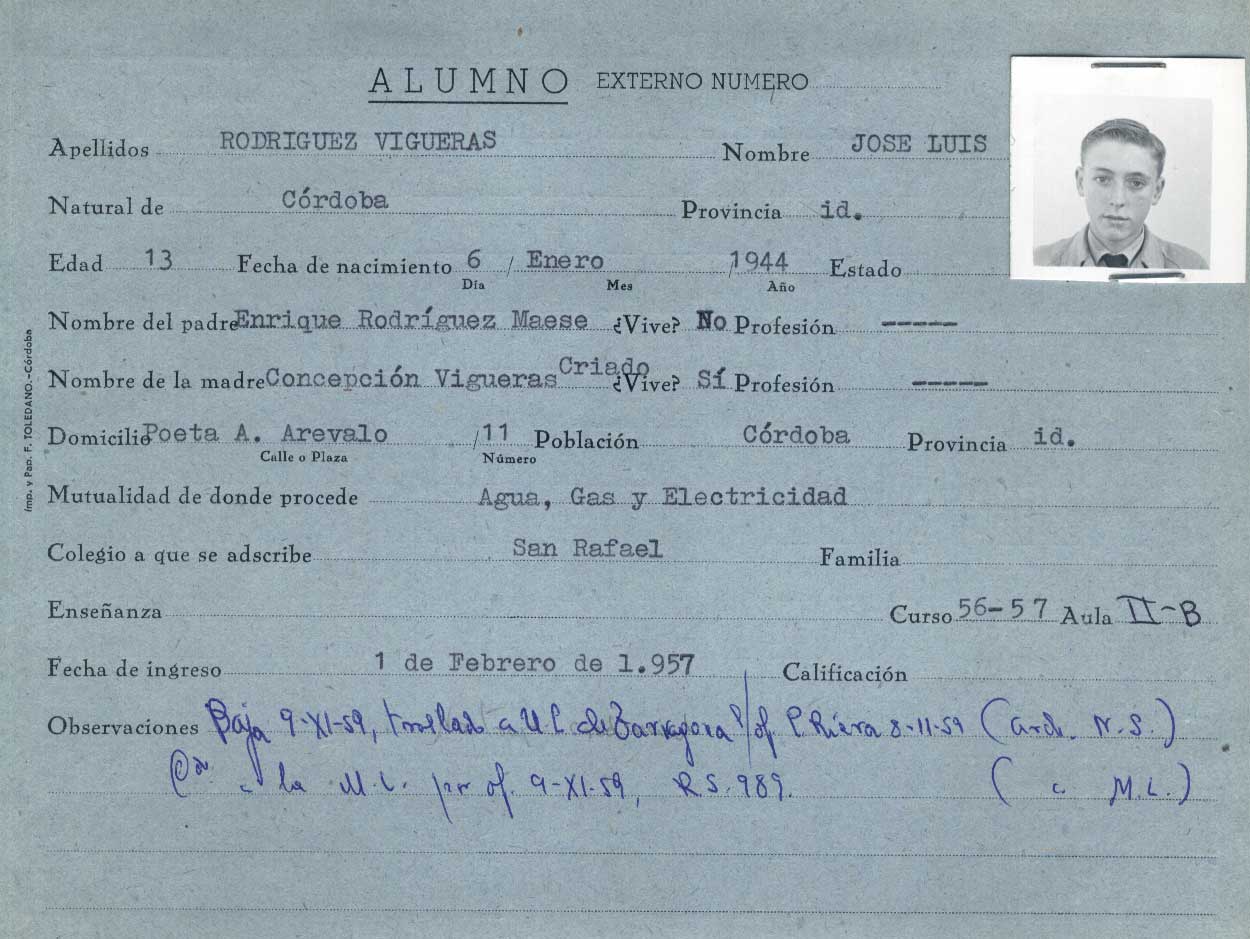 ALUMNO EXTERNO NUMERO
Apellidos RODRIGUEZ VIGUERAS Nombre JOSE LUIS
Natural de Córdoba Provincia id.
Edad 13 Fecha de nacimiento 6 / Enero /1944 Estado
Día Mes Año
Nombre del padre Enrique Rodríguez Maese ¿Vive? No Profesión -----
Nombre de la madre Concepción Vigueras Criado ¿Vive? Sí Profesión -----
Domicilio Poeta A. Arevalo /11 Población Córdoba Provincia id.
Calle o Plaza Número
Mutualidad de donde procede Agua, Gas y Electricidad
Colegio a que se adscribe San Rafael Familia
Enseñanza Curso 56-57 Aula II-B
Fecha de ingreso 1 de Febrero de 1.957 Calificación
Observaciones Baja 9-XI-59, a U.L. de Tarragona P. Riera 8-11-59 ( N.S.)
a la M.L. por of. 9-XI-59, R.S. 989. ( M.L.)
Imp. y Pap. F. TOLEDANO.-Córdoba